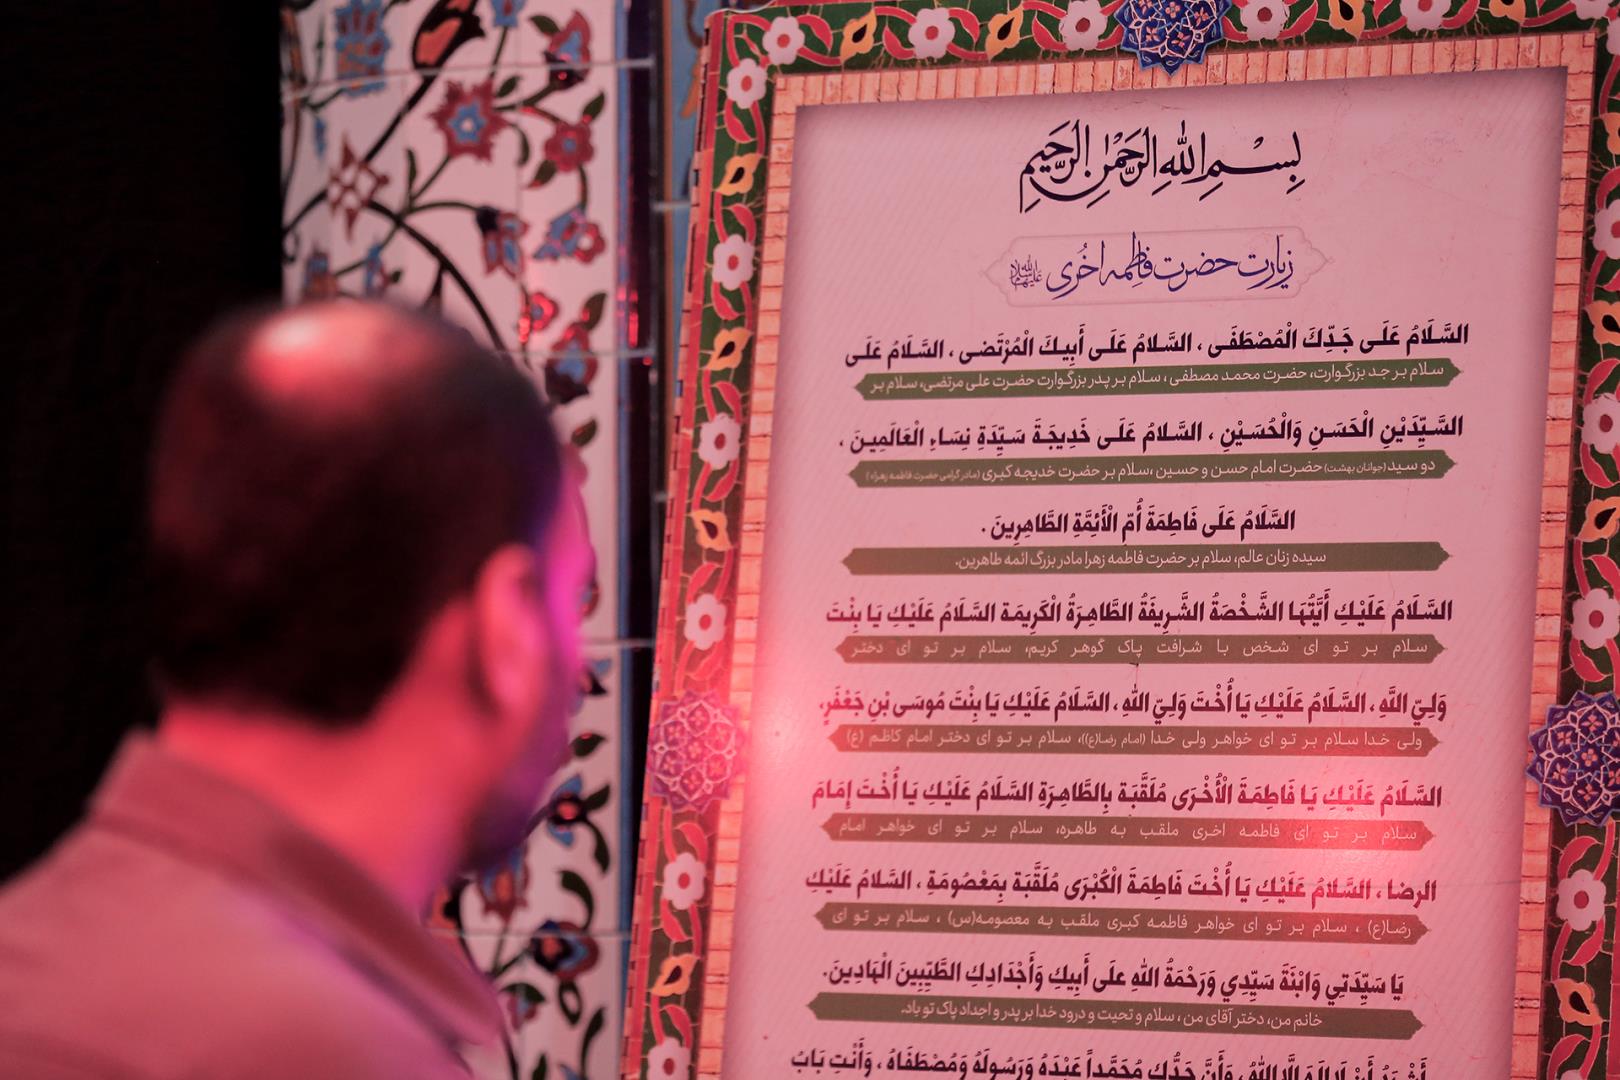 بِسْمِ اللهِ الرَّحْمٰنِ الرَّحِيمِ
زیارت حضرت فاطمه اخُری سلام الله علیها
السَّلَامُ عَلَى جَدِّكَ الْمُصْطَفَى ، السَّلامُ عَلَى أَبِيكَ الْمُرْتَضى ، السَّلَامُ عَلَى
سلام بر جد بزرگوارت، حضرت محمد مصطفی ، سلام بر پدر بزرگوارت حضرت علی مرتضی، سلام بر
السَّيِّدَيْنِ الْحَسَنِ وَالْحُسَيْنِ ، السَّلامُ عَلَى خَدِيجَةَ سَيِّدَةِ نِسَاءِ الْعَالَمِينَ ،
دو سید (جوانان بهشت) حضرت امام حسن و حسین ،سلام بر حضرت خدیجه کبری (مادر گرامی حضرت فاطمه زهرا)
السَّلامُ عَلَى فَاطِمَةَ أُمِّ الْأَئِمَّةِ الطَّاهِرِينَ .
سیده زنان عالم، سلام بر حضرت فاطمه زهرا مادر بزرگ ائمه طاهرین.
السَّلَامُ عَلَيْكِ أَيَّتُهَا الشَّخْصَةُ الشَّرِيفَةُ الطَّاهِرَةُ الْكَرِيمَة السَّلَامُ عَلَيْكِ يَا بِنْتَ
سلام بر تو ای شخص با شرافت پاک گوهر کریم، سلام بر تو ای دختر
وَلِيّ اللَّهِ ، السَّلَامُ عَلَيْكِ يَا أُخْتَ وَلِيّ اللهِ ، السَّلامُ عَلَيْكِ يَا بِنْتَ مُوسَى بْنِ جَعْفَرٍ،
ولی خدا سلام بر تو ای خواهر ولی خدا (امام رضا(ع))، سلام بر تو ای دختر امام کاظم (ع)
السَّلامُ عَلَيْكِ يَا فَاطِمَةَ الْأُخْرَى مُلَقَّبَة بِالطَّاهِرَةِ السَّلامُ عَلَيْكِ يَا أُخْتَ إِمَامَ
سلام بر تو ای فاطمه اخری ملقب به طاهره، سلام بر تو ای خواهر امام
الرضا ، السَّلامُ عَلَيْكِ يَا أُخْتَ فَاطِمَةَ الْكُبْرَى مُلَقَّبَة بِمَعْصُومَةِ ، السَّلامُ عَلَيْكِ
رضا(ع) ، سلام بر تو ای خواهر فاطمه کبری ملقب به معصومه(س) ، سلام بر تو ای
يَا سَيِّدَتِي وَابْنَةَ سَيِّدِي وَرَحْمَةُ اللهِ عَلَى أَبِيكِ وَأَجْدَادِكِ الطَّيِّبِينَ الْهَادِينَ.
خانم من، دختر آقای من ، سلام و تحیت و درود خدا بر پدر و اجداد پاک تو باد.
أَشْهَدُ أَنْ لَا إِلَهَ إِلَّا اللهُ ، وَأَنَّ جَدَّكِ مُحَمَّداً عَبْدُهُ وَرَسُولُهُ وَمُصْطَفَاهُ ، وَأَنْتِ بَابُ